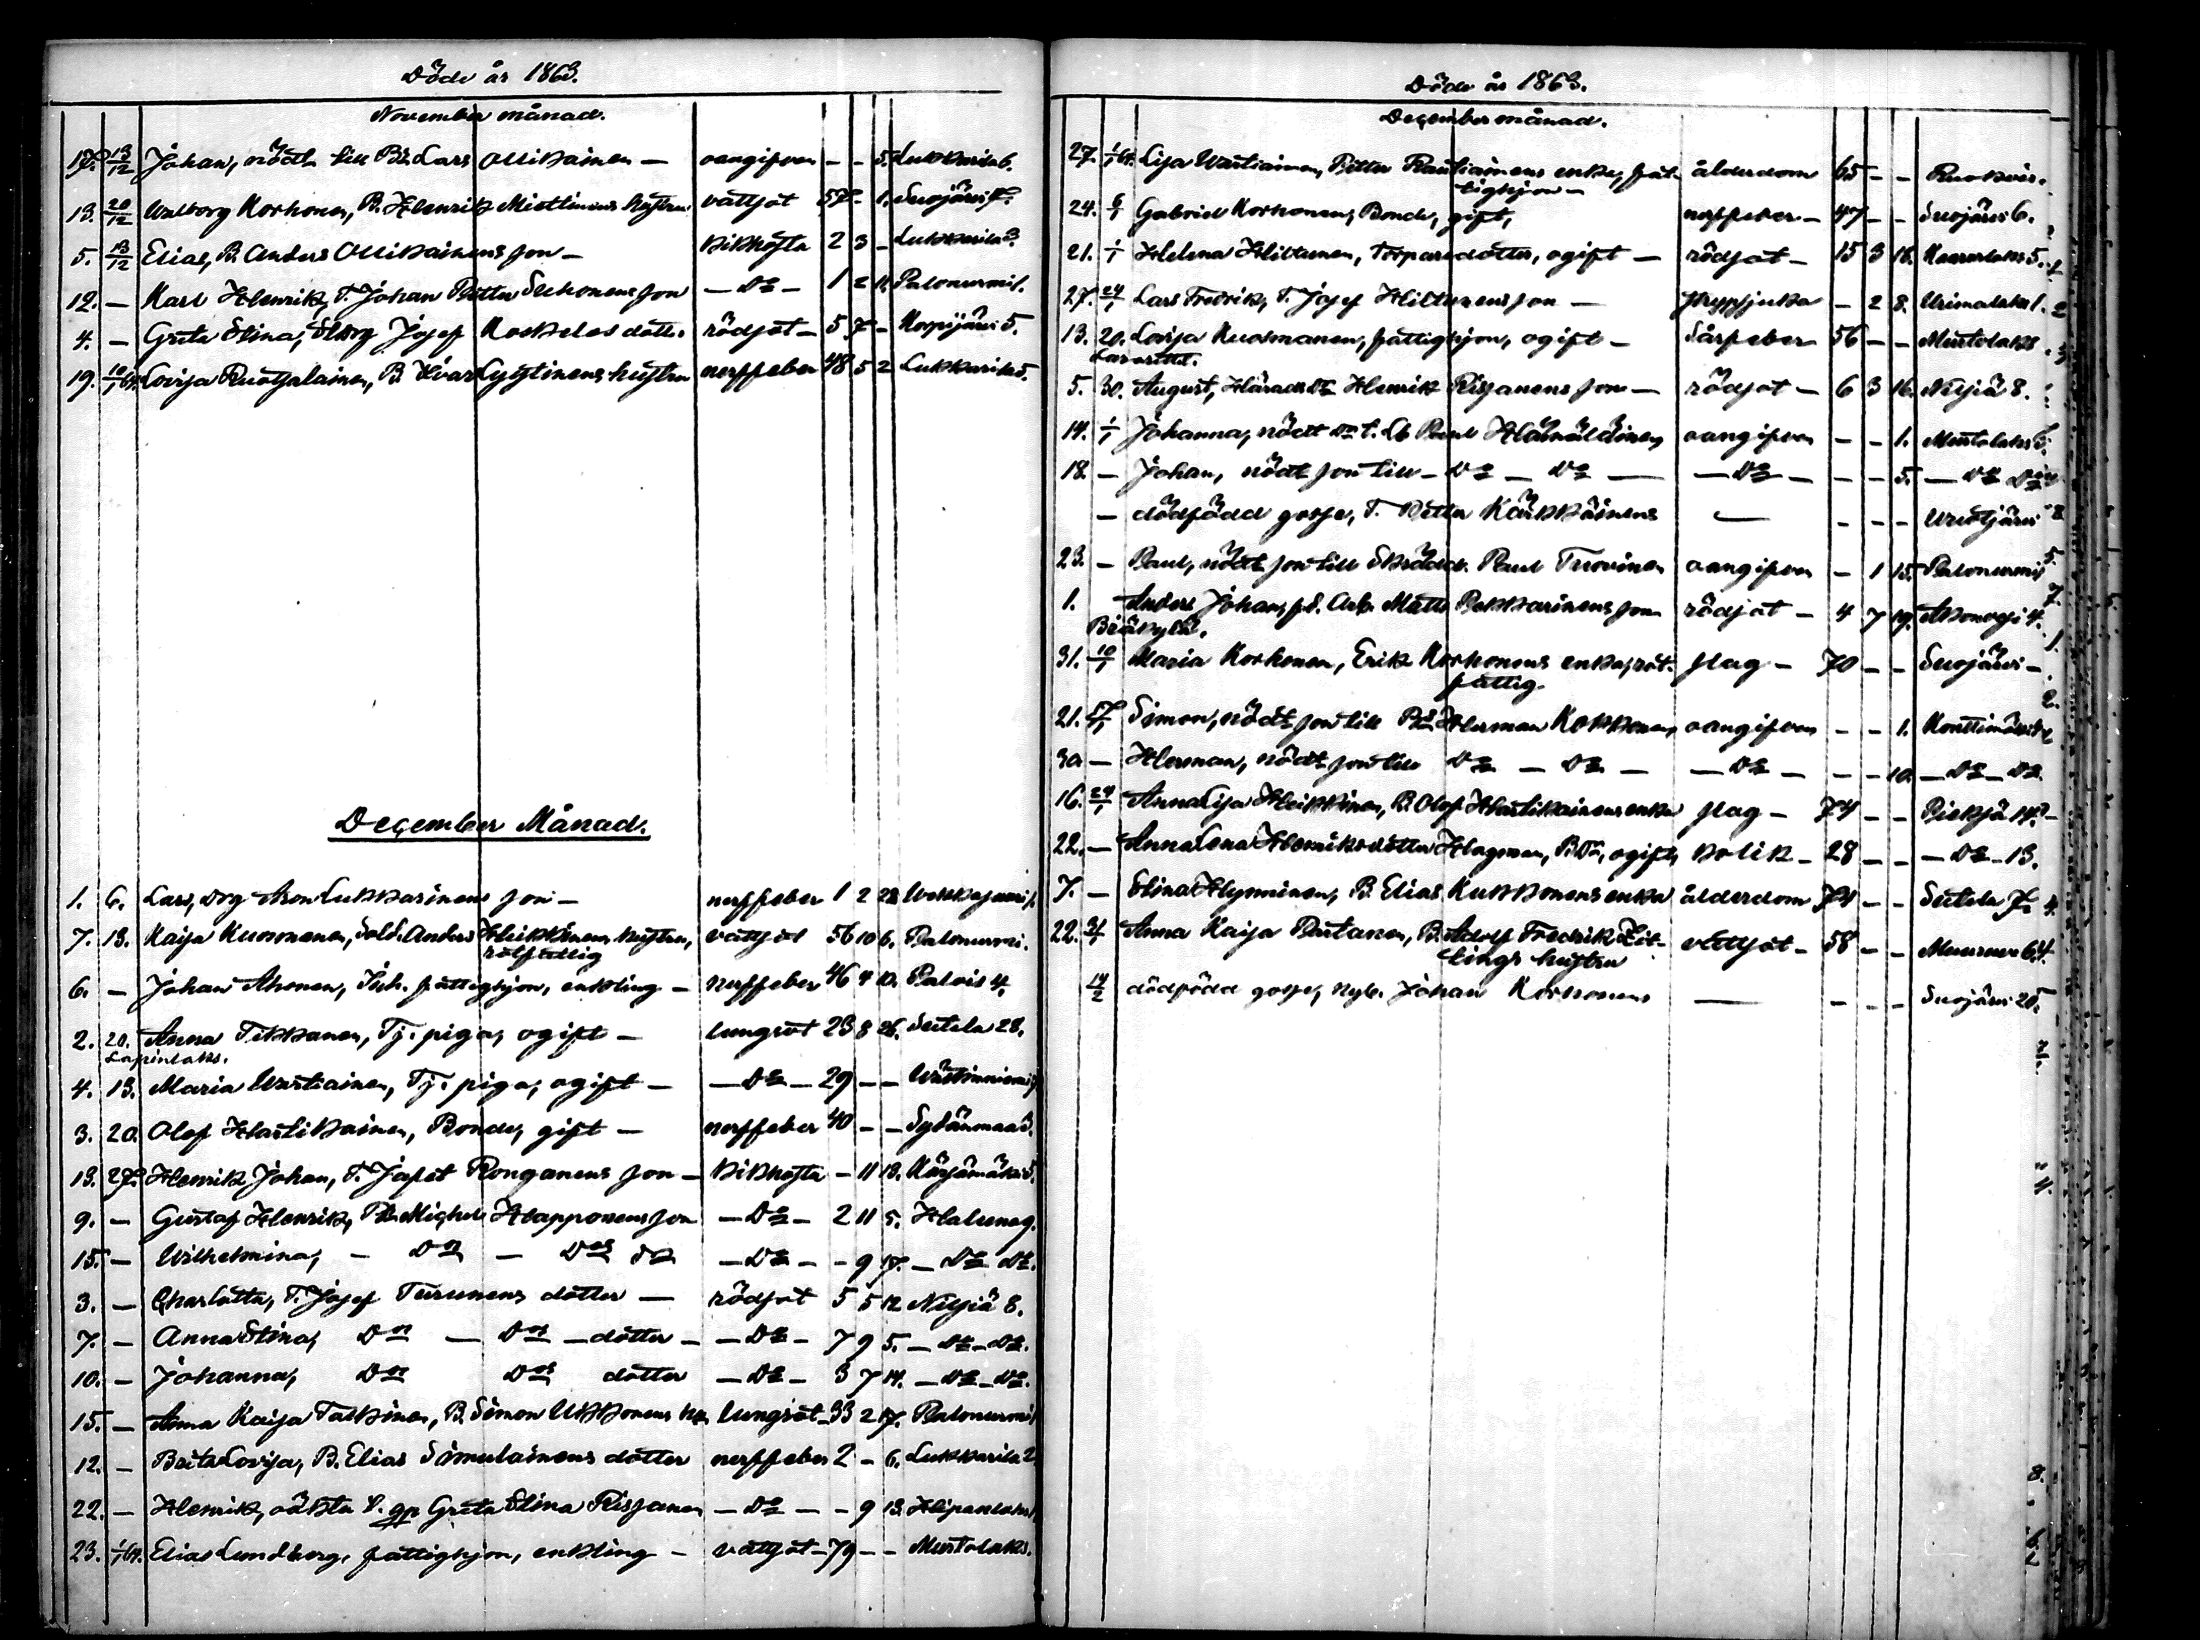 Döde år 1863.
November månad.
17. 13/12 Johan, nödt. till B. Lars Ollikainen — oangifven — — 5. Lukkarila 6.
13. 20/12 Walborg Korhonen, B. Henrik Miettinens hustru vattsot 57 — 1. Suojärvi
5. 13/12 Elias, B. Anders Ollikainens son — kikhosta 2 3 — Lukkarila 3.
12. — Karl Henrik, T. Johan Petter Suhonens son — Do — 1 2 11. Palonurmi 1.
4. — Greta Stina, Josef Koskelos dotter rödsot — 5 7 — Korpijärvi 5.
19. 10/1 64. Lovisa Ruotsalainen, B. Ivar Lyytinens hustru nerffeber 48 5 2 Lukkarila 5.
December Månad.
1. 6. Lars, Drg Aron Lukkarinens son — nerffeber 1 2 28
7. 13. Kaija Kuosmanen, Sold. Anders Heikkinens hustru, vattsot 56 10 6. Palonurmi.
rotfattig
6. — Johan Ahonen, Inh. fattighjon, enkling — nerffeber 46 4 10. Palois 4.
2. 20. Anna Tikkanen, Tj. piga, ogift — lungsot 23 8 26. Sutela 28.
Lapinlaks.
4. 13. Maria Wartiainen, Tj. piga, ogift — — Do — 29 — — Västinniemi
3. 20. Olof Hartikainen, Bonde, gift — nerffeber 40 — — Sydänmaa 3.
13. 27. Henrik Johan, T. Jafet Ronganens son — kikhosta — 11 13. Kärsämäki 5.
9. — Gustaf Henrik, B. Michel Happonens son — Do — 2 11 5. Haluna 9.
15. — Wilhelmina, — Dn — Dns — Do — — 9 17. — Do Do.
3. — Charlotta, T. Josef Turunens dotter — rödsot 5 5 12 Nilsiä 8.
7. — Anna Stina, Dn — Dns — dotter — — Do — 7 9 5. — Do — Do.
10. — Johanna, Dn Dns dotter — Do — 3 7 14. — Do — Do.
15. — Anna Kaija Taskinen, B. Simon Ukkonens h. lungsot — 33 2 17. Palonurmi
12. — Brita Lovisa, B. Elias Simulainens dotter nerffeber 2 — 6. Lukkarila 2
22. — Henrik, oäkta t. qp Greta Stina Rissanen — Do — — 9 13.
23. 1/1 64. Elias Lundberg, fattighjon, enkling — vattsot — 79 — — Mustolaks.
Döde år 1863.
December månad.
27. 1/1 64. Lisa Wartiainen, Petter Rautiainens enka, fat- ålderdom 65 — —
tighjon —
24. 6/1 Gabriel Korhonen, Bonde, gift, nerffeber — 47 — — Suojärvi 6.
21. 1/1 Helena Hiltunen, Torparedotter, ogift — rödsot — 15 3 18.
27. 24/1 Lars Fredrik, T. Josef Hiltunens son — strypsjuka — 2 8. Urimolaks 1.
13. 20. Lovisa Kuosmanen, fattighjon, ogift — Sårfeber 56 — — Mustolaks
Lasarettet.
5. 30. August, Henrik Rissanens son — rödsot — 6 3 16. Nilsiä 8.
14. 1/1 Johanna, nödt dr t. Lb Paul Hämäläinen, oangifven — — 1. Mustolaks 3.
18. — Johan, nödt son till — Do — Do — — Do — — — 5. — Do Do
— dödfödd gosse, T. Petter Kärkkäinens — — — —
23. — Paul, nödt son till Skrädd. Paul Tuovinen oangifven — 1 15. Palonurmi
1. Anders Johan, fd. Arb. Matts Pekkarinens son rödsot — 4 7 19. Akonpoja 4.
Bräkylä.
31. 10/1 Maria Korhonen, Erik Korhonens enka, rot- slag — 70 — — Suojärvi —
fattig.
21. 17/1 Simon, nödt son till Bs Herman Kokkonen, oangifven — — 1. Konttimäki
30 — Herman, nödt son till Do — Do — — Do — — — 10. — Do — Do.
16. 24/1 Anna Lisa Heikkinen, B. Olof Hartikainens enka slag — 74 — — Pieksä 14.
22. — Anna Lena Henriksdotter Hagman, B. Dr, ogift, kolik — 28 — — — Do — 13.
7. — Stina Hynninen, B. Elias Kukkonens enka ålderdom 74 — — Sutela 7.
22. 31/1 Anna Kaija Partanen, B. Adolf Fredrik Zit- vattsot — 58 — — Muuruve 64.
tings hustru
14/2 dödfödd gosse, nyb. Johan Korhonens — — — — Suojärvi 20.